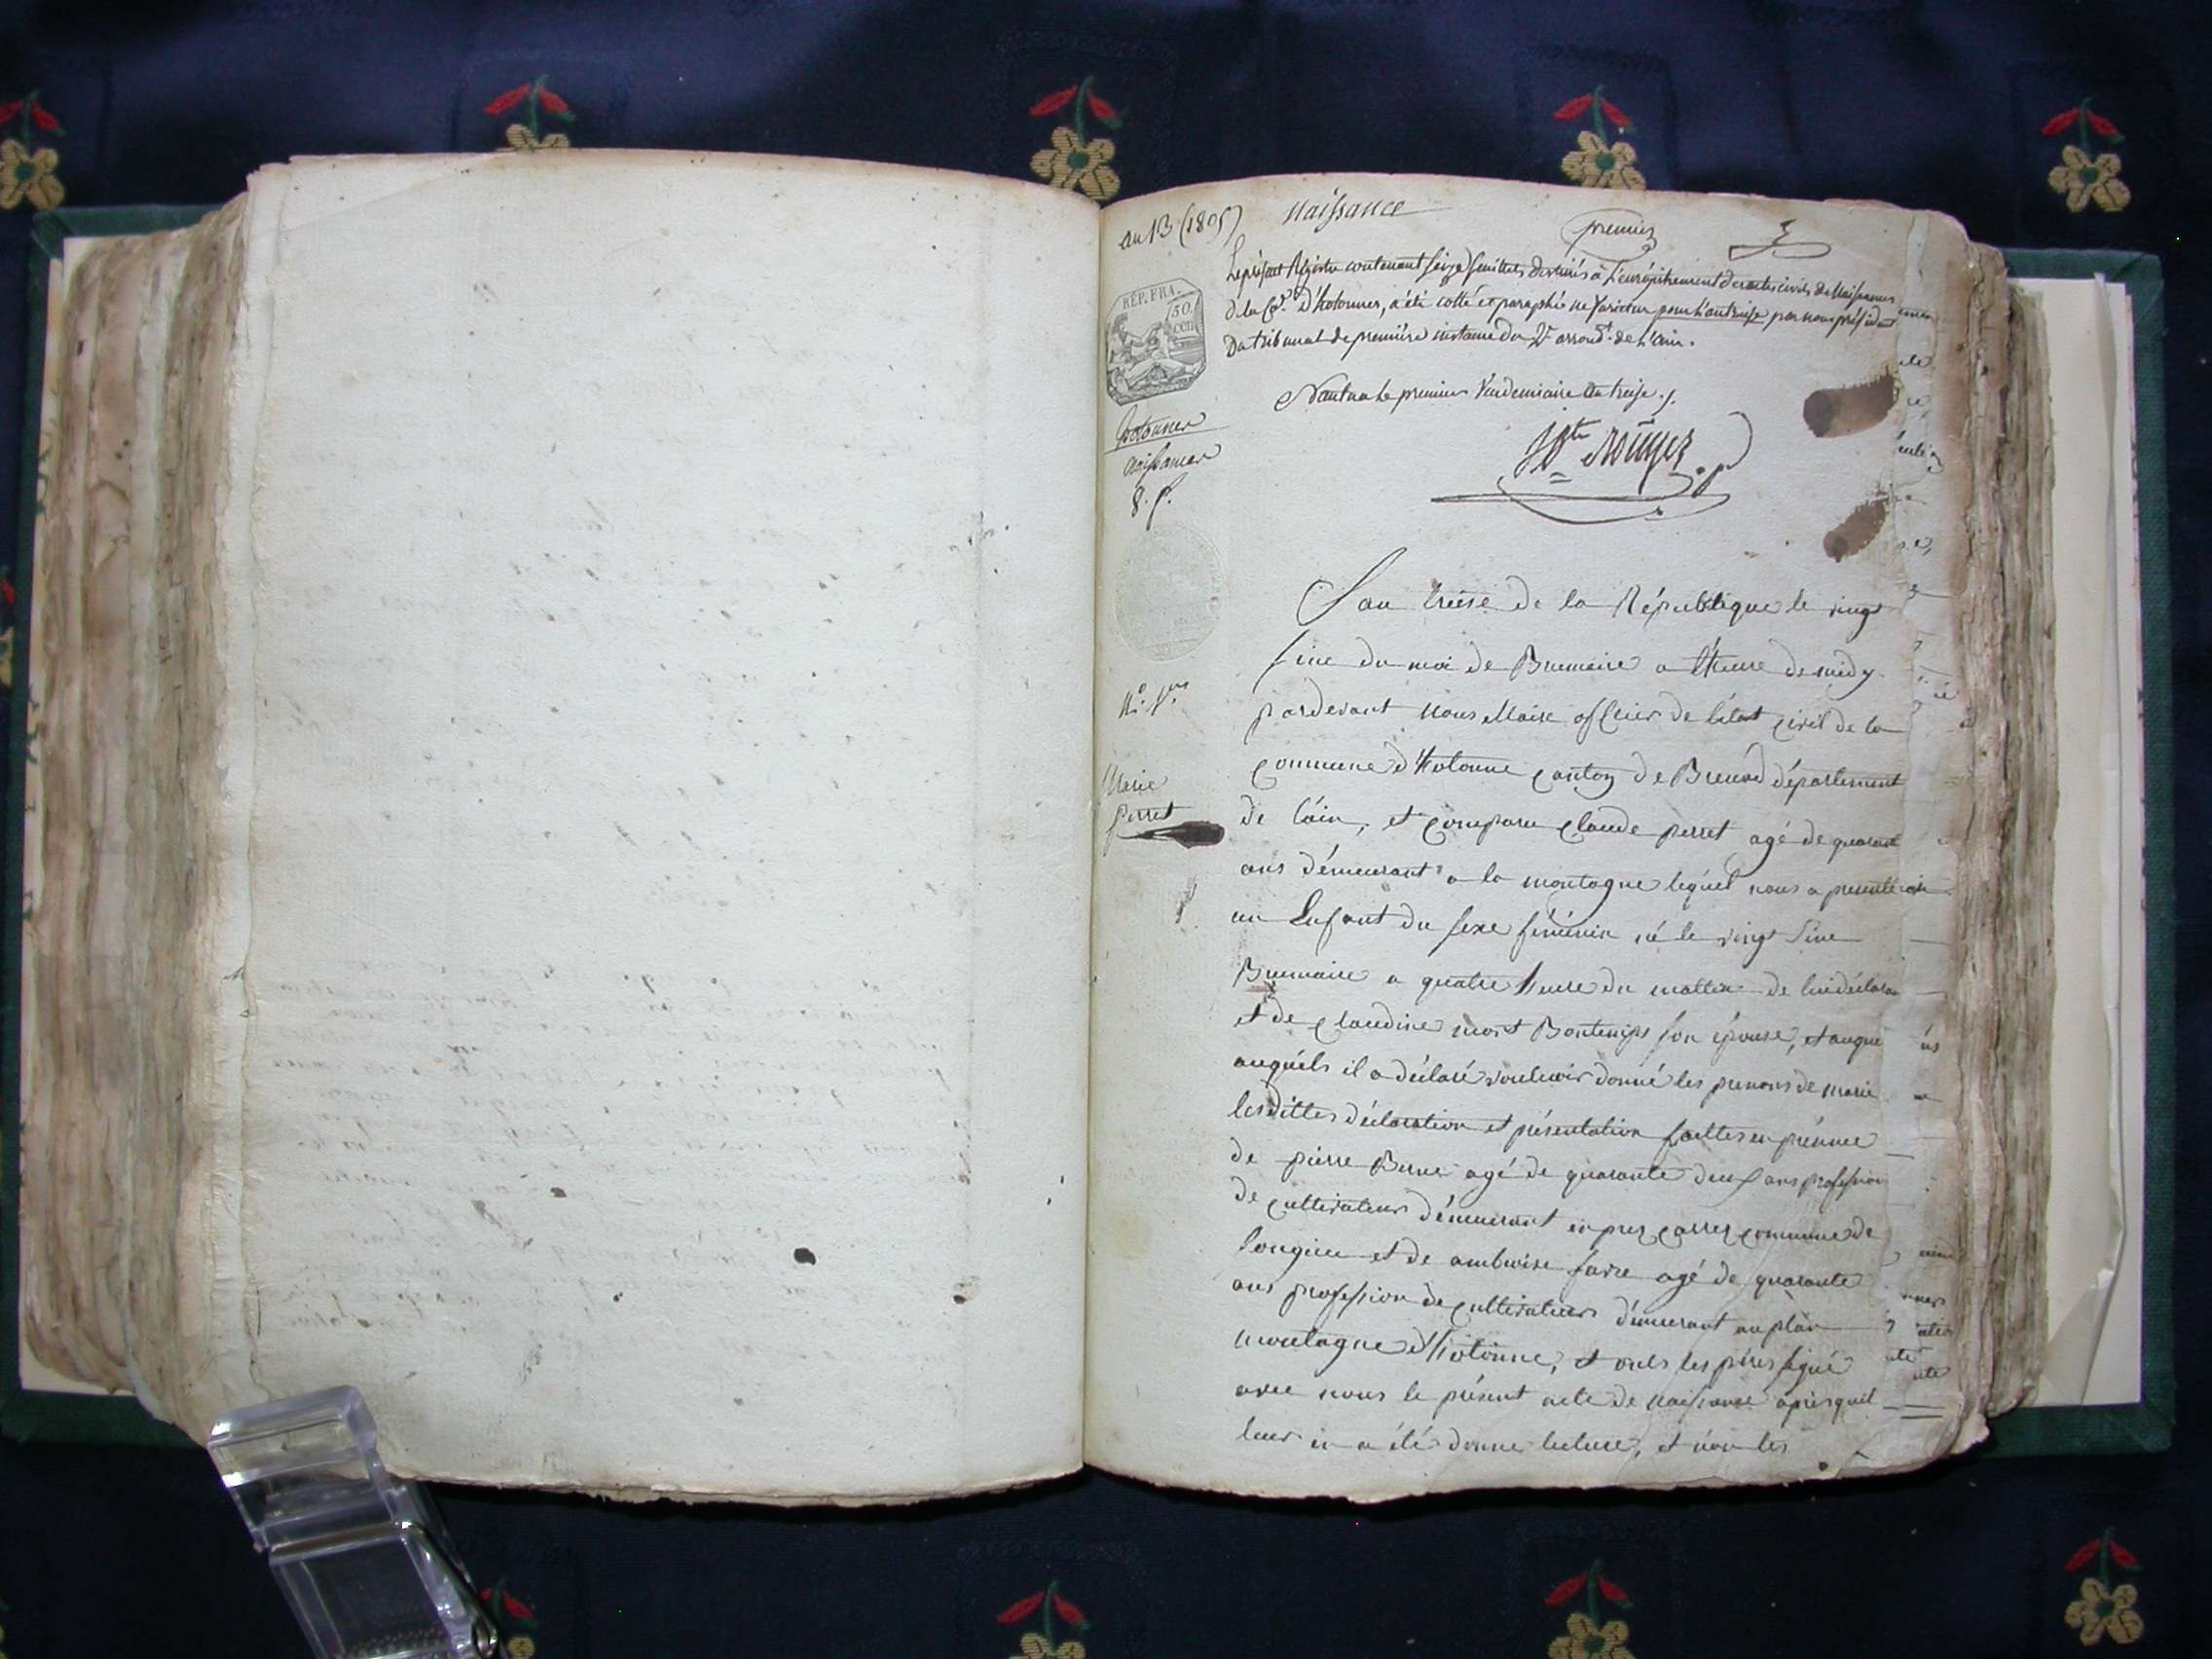 an 13 (1805) naissance
premier
Le présent Registre contenant seize feuillets destinés à l'enregistrement des actes civils de Naissances
de la Cne. d'hotonnes, a été cotté et paraphé ne varietur pour l'an treize par nous président
du tribunal de première instance du 2e arrondt. de l'ain.
Nantua le premier Vendemiaire an treize.
REP. FRA.
50
cen
hotonnes
Naissances
8. f.
Rouyer
L'an treise de la République le vingt
sine du moi de Brumaire a l'heure de midy
pardevant nous Maire officier de l'état civil de la
commune d'Hotonne canton de Brenod département
de l'ain, et comparu claude perret agé de quarant
ans démeurant a la montagne lequel nous a presenté
un Enfant du sexe féminin né le vingt sine
Brumaire a quatre heure du mattin de lui déclarant
et de claudine mort Bontemps son épouse, et auque
auquels il a déclaré vouleoir donné les prenoms de marie
les dittes déclaration et présentation faittes en présence
de pierre Berne agé de quarante deux ans profession
de cultivateur démeurant en prez carrez commune de
songieu et de ambroise favre agé de quarante
ans profession de cultivateur démeurant au plan
montagne d'Hotonne, et onts les péres signé
avec nous le présent acte de naissance aprésquil
leur en a été donne lecture, et non les
N.o 1er
Marie
perret